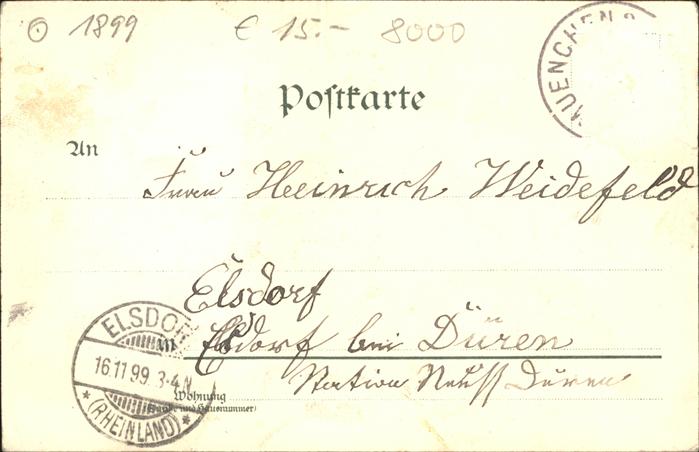 ⊙ 1899 € 15.- 8000
MUENCHEN 2
Postkarte
An
Frau Heinrich Weidefeld
Elsdorf
Elsdorf bei Düren
Station Neuss Düren
in
Wohnung
(Straße und Hausnummer)
ELSDORF
16.11.99. 3-4N
* (RHEINLAND) *